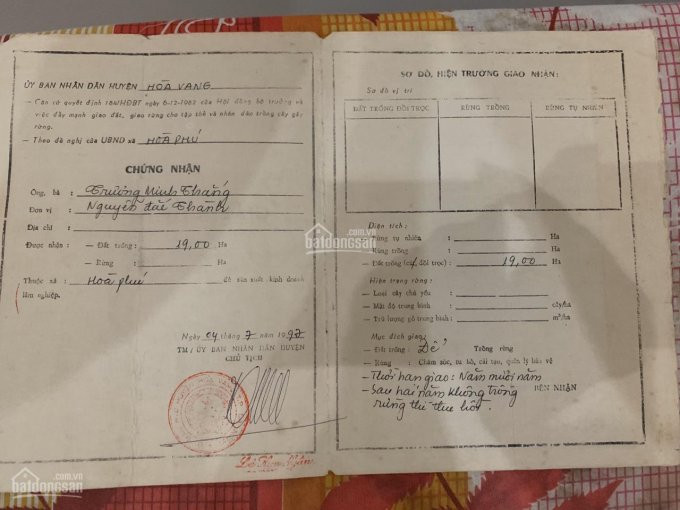 ỦY BAN NHÂN DÂN HUYỆN HÒA VANG
– Căn cứ quyết định 184/HĐBT ngày 6-12-1982 của Hội đồng bộ trưởng về
việc đẩy mạnh giao đất, giao rừng cho tập thể và nhân dân trồng cây gây
rừng.
– Theo đề nghị của UBND xã HÒA PHÚ
CHỨNG NHẬN
Ông, bà : Trương Minh Thắng
Đơn vị : Nguyễn đắc Thành
Địa chỉ :
Được nhận : – Đất trống : 19,00 Ha
– Rừng : Ha
Thuộc xã : Hoà phú để sản xuất kinh doanh
lâm nghiệp.
Ngày 04 tháng 7 năm 1997
TM/ ỦY BAN NHÂN DÂN HUYỆN
CHỦ TỊCH
SƠ ĐỒ, HIỆN TRƯỜNG GIAO NHẬN:
Sơ đồ vị trí
ĐẤT TRỐNG ĐỒI TRỌC RỪNG TRỒNG RỪNG TỰ NHIÊN
Diện tích :
– Rừng tự nhiên : Ha
– Rừng trồng : Ha
– Đất trống (đồi trọc) : 19,00 Ha
Hiện trạng rừng :
– Loại cây chủ yếu :
– Mật độ trung bình : cây/ha
– Trữ lượng gỗ trung bình : m³/ha
Mục đích giao :
– Đất trống : Để Trồng rừng
– Rừng : Chăm sóc, tu bổ, cải tạo, quản lý bảo vệ
– Thời hạn giao : Năm mươi năm
– Sau hai năm không trồng BÊN NHẬN
rừng thì thu hồi.
batdongsan.com.vn
batdongsan.com.vn
batdongsan.com.vn